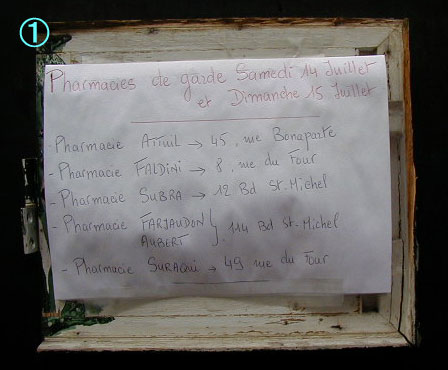 ①
Pharmacies de garde Samedi 14 Juillet
et Dimanche 15 Juillet
- Pharmacie ATTUIL → 45, rue Bonaparte
- Pharmacie FALDINI → 8, rue du Four
- Pharmacie SUBRA → 12 Bd St. Michel
- Pharmacie FARJAUDON } 114 Bd St-Michel
AUBERT
- Pharmacie SURAQUI → 49 rue du Four